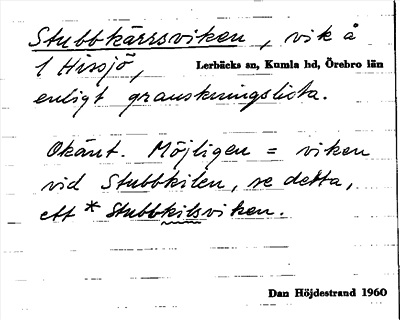 Stubbkärrsviken, vik å
1 Hissjö, Lerbäcks sn, Kumla hd, Örebro län
enligt granskningslista.
Okänt. Möjligen = viken
vid Stubbkilen, se detta,
ett * Stubbkilsviken.
Dan Höjdestrand 1960